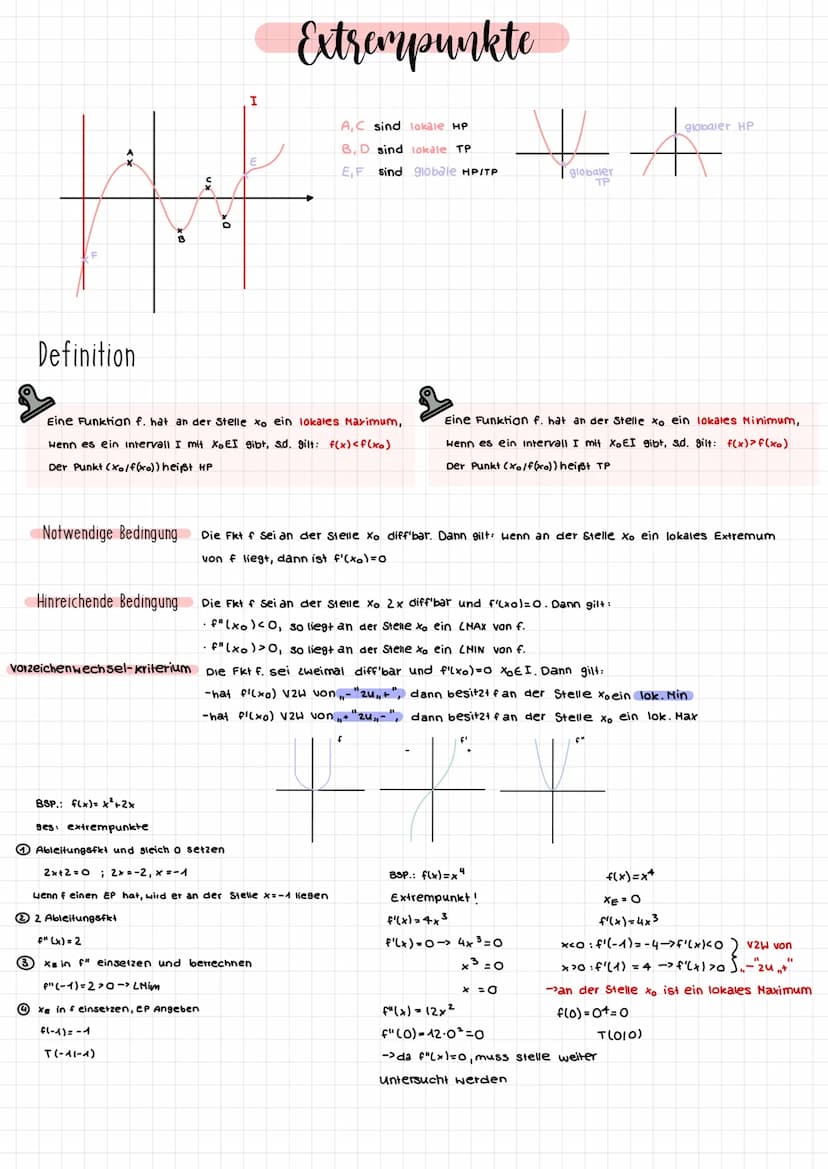 Extrempunkte
I
A
C
E
B
D
F
A,C sind lokale HP
B,D sind lokale TP
E,F sind globale HP/TP
globaler TP
globaler HP
Definition
Eine Funktion f. hat an der Stelle x₀ ein lokales Maximum,
wenn es ein Intervall I mit x₀EI gibt, s.d. gilt: f(x)<f(x₀)
Der Punkt (x₀/f(x₀)) heißt HP
Eine Funktion f. hat an der Stelle x₀ ein lokales Minimum,
wenn es ein Intervall I mit x₀EI gibt, s.d. gilt: f(x)>f(x₀)
Der Punkt (x₀/f(x₀)) heißt TP
Notwendige Bedingung Die Fkt f sei an der Stelle x₀ diff'bar. Dann gilt: wenn an der Stelle x₀ ein lokales Extremum
von f liegt, dann ist f'(x₀)=0
Hinreichende Bedingung Die Fkt f sei an der Stelle x₀ 2x diff'bar und f'(x₀)=0. Dann gilt:
· f"(x₀)<0, so liegt an der Stelle x₀ ein LMAX von f.
· f"(x₀)>0, so liegt an der Stelle x₀ ein LMIN von f.
Vorzeichenwechsel-Kriterium Die Fkt f. sei zweimal diff'bar und f'(x₀)=0 x₀∈I. Dann gilt:
-hat f'(x₀) VZW von „-" zu „+", dann besitzt f an der Stelle x₀ ein lok. Min
-hat f'(x₀) VZW von „+" zu „-", dann besitzt f an der Stelle x₀ ein lok. Max
f
f'
f"
-
+
BSP.: f(x)= x²+2x
ges: extrempunkte
① Ableitungsfkt und gleich 0 setzen
2x+2=0 ; 2x=-2, x=-1
wenn f einen EP hat, wird er an der Stelle x=-1 liegen
② 2 Ableitungsfkt
f"(x)=2
③ xᴇ in f" einsetzen und berrechnen
f"(-1)=2>0 -> LMin
④ xᴇ in f einsetzen, EP Angeben
f(-1)=-1
T(-1|-1)
BSP.: f(x)=x⁴
Extrempunkt!
f'(x)=4x³
f'(x)=0 -> 4x³=0
x³=0
x=0
f"(x)=12x²
f"(0)=12·0²=0
->da f"(x)=0, muss stelle weiter
untersucht werden
f(x)=x⁴
xᴇ=0
f'(x)=4x³
x<0: f'(-1)=-4->f'(x)<0 } VZW von
x>0: f'(1)=4 ->f'(x)>0 } „-" zu „+"
->an der Stelle x₀ ist ein lokales Maximum
f(0)=0⁴=0
T(0|0)